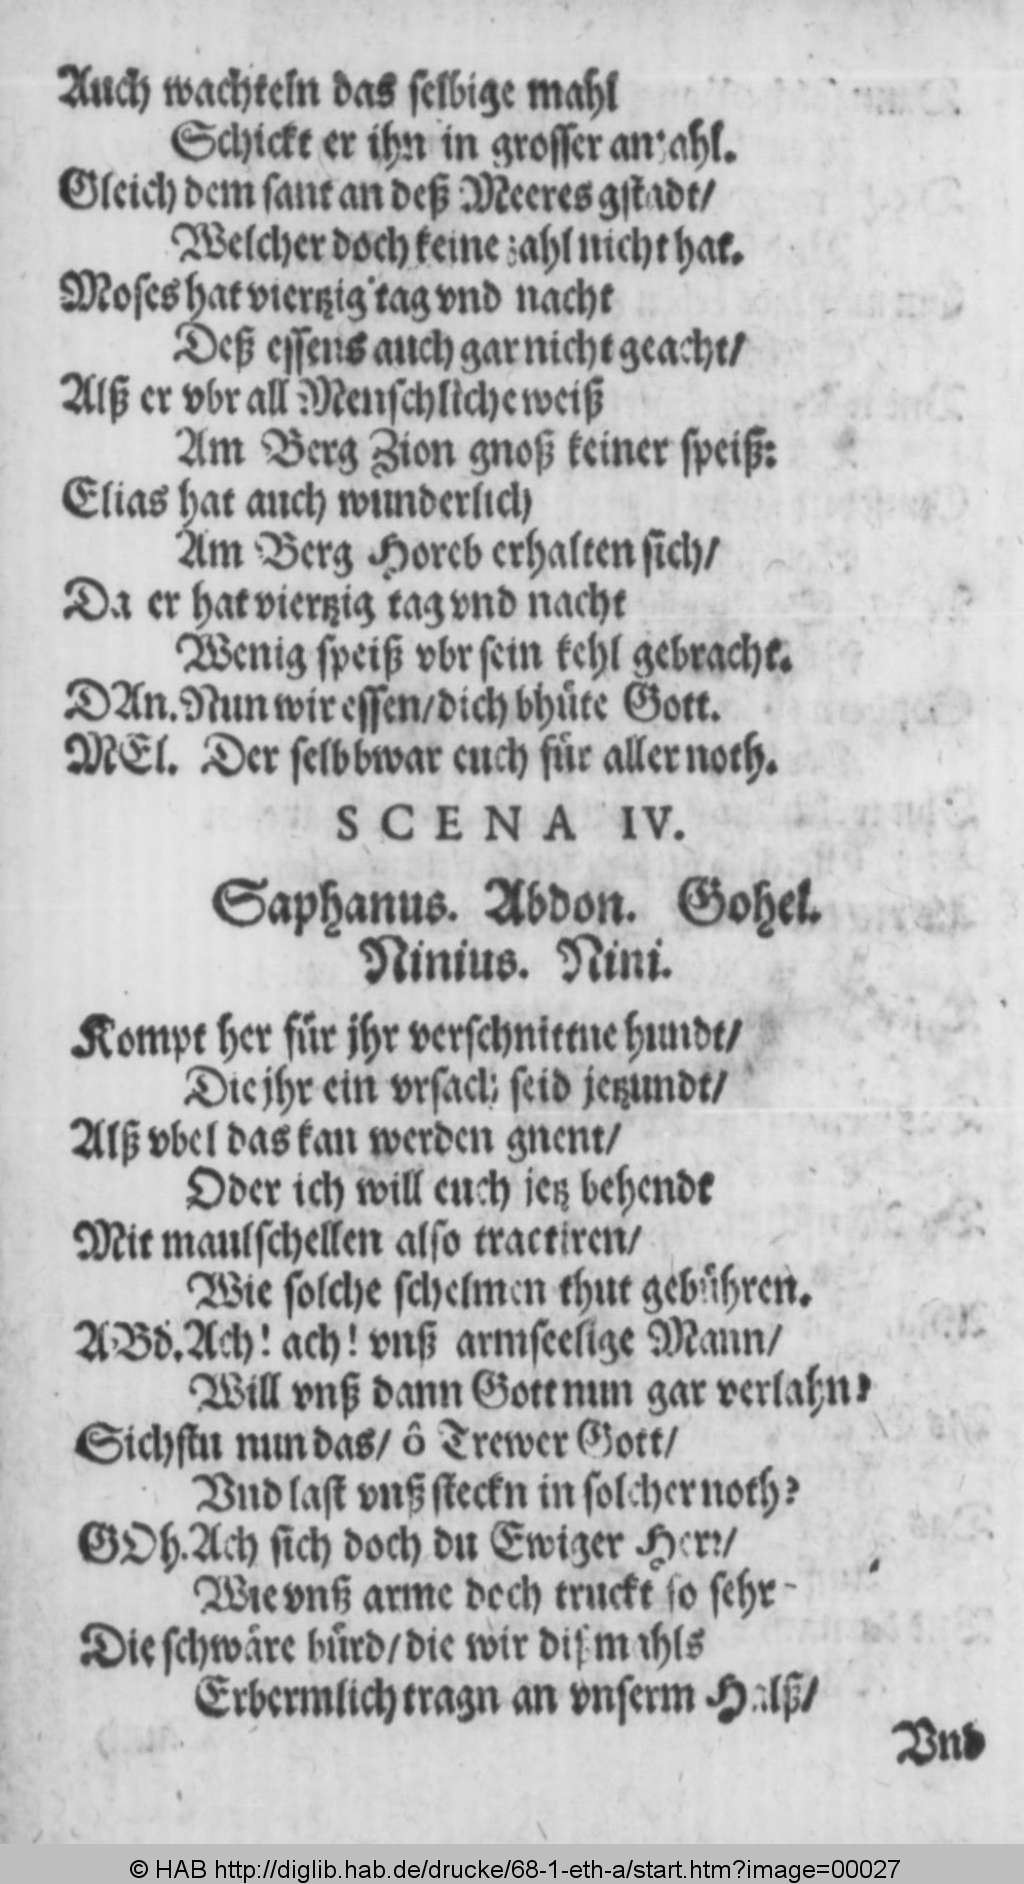 Auch wachteln das selbige mahl
Schickt er ihn in grosser anzahl.
Gleich dem sant an deß Meeres gstadt/
Welcher doch keine zahl nicht hat.
Moses hat viertzig tag vnd nacht
Deß essens auch gar nicht geacht/
Alß er vbr all Menschliche weiß
Am Berg Zion gnoß keiner speiß:
Elias hat auch wunderlich
Am Berg Horeb erhalten sich/
Da er hat viertzig tag vnd nacht
Wenig speiß vbr sein kehl gebracht.
DAn. Nun wir essen/ dich bhüte Gott.
MEl. Der selb bwar euch für aller noth.
SCENA IV.
Saphanus. Abdon. Gohel.
Ninius. Nini.
Kompt her für jhr verschnittne hundt/
Die jhr ein vrsach seid jetzundt/
Alß vbel das kan werden gnent/
Oder ich will euch jetz behendt
Mit maulschellen also tractiren/
Wie solche schelmen thut gebühren.
ABd. Ach! ach! vnß armseelige Mann/
Will vnß dann Gott nun gar verlahn?
Sichstu nun das/ ô Trewer Gott/
Vnd last vnß steckn in solcher noth?
GOh. Ach sich doch du Ewiger Herr/
Wie vnß arme doch truckt so sehr
Die schwäre bürd/ die wir dißmahls
Erbermlich tragn an vnserm Halß/
Vnd
© HAB http://diglib.hab.de/drucke/68-1-eth-a/start.htm?image=00027